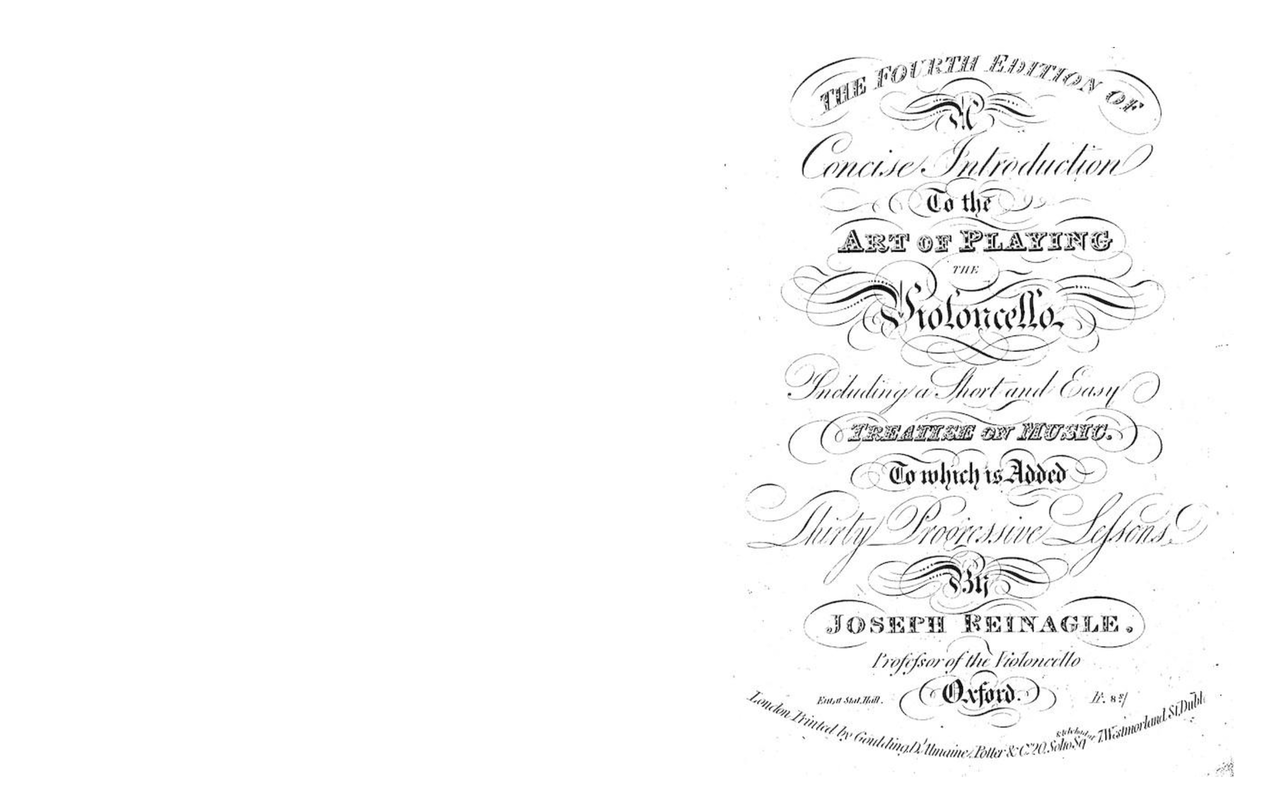 THE FOURTH EDITION OF
A
Concise Introduction
To the
ART OF PLAYING
THE
Violoncello,
Including a Short and Easy
TREATISE ON MUSIC.
To which is Added
Thirty Progressive Lessons,
By
JOSEPH REINAGLE.
Professor of the Violoncello
Oxford.
Ent. at Stat. Hall.
London Printed by Goulding, D'Almaine, Potter & Co. 20, Soho Sq. & to be had at 7, Westmorland St. Dubl